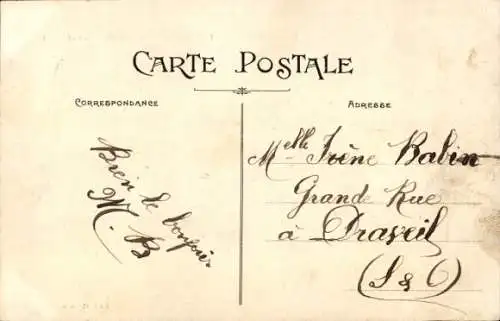 CARTE POSTALE
CORRESPONDANCE
ADRESSE
Bien le bonjour
M. B
Melle Irène Babin
Grande Rue
à Draveil
(S & O)